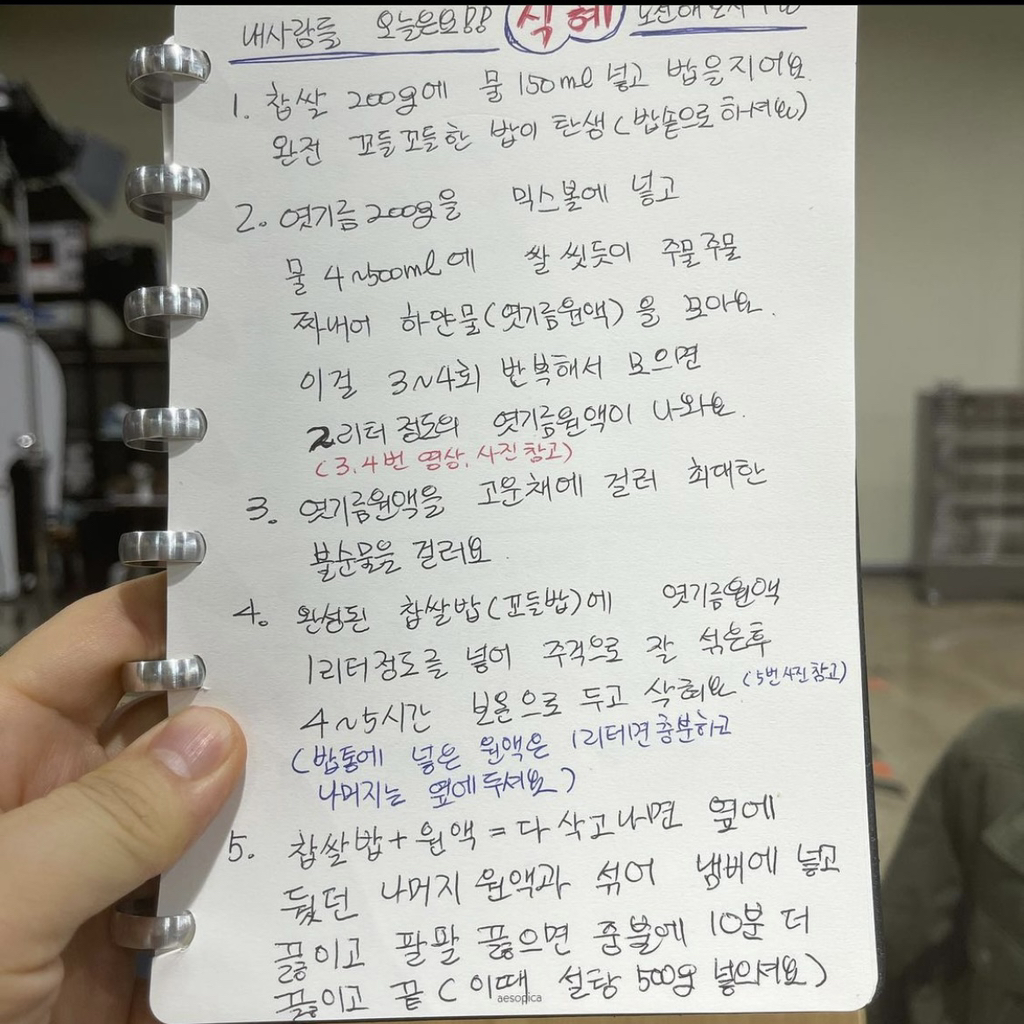 내사람들 오늘은요!! 식혜 도전해보시구요
1. 찹쌀 200g에 물 150ml 넣고 밥을지어요
완전 꼬들꼬들한 밥이 탄생 (밥솥으로 하셔요)
2. 엿기름 200g을 믹스볼에 넣고
물 4~500ml에 쌀 씻듯이 주물주물
짜내어 하얀물(엿기름원액)을 모아요.
이걸 3~4회 반복해서 모으면
2리터 정도의 엿기름원액이 나와요.
(3.4번 영상. 사진참고)
3. 엿기름원액을 고운채에 걸러 최대한
불순물을 걸러요.
4. 완성된 찹쌀밥(꼬들밥)에 엿기름원액
1리터정도를 넣어 주걱으로 잘 섞은후
4~5시간 보온으로 두고 삭혀요 (5번사진참고)
(밥통에 넣은 원액은 1리터면 충분하고
나머지는 옆에두셔요)
5. 찹쌀밥 + 원액 = 다 삭고나면 옆에
뒀던 나머지 원액과 섞어 냄비에 넣고
끓이고 팔팔 끓으면 중불에 10분 더
끓이고 끝 (이때 설탕 500g 넣으셔요)
aesopica